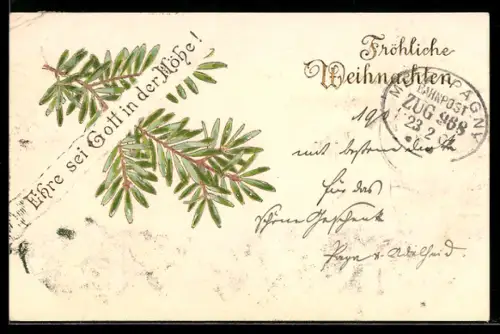 Ehre sei Gott in der Höhe!
Fröhliche
Weihnachten
BAHNPOST
ZUG 968
23 2
190
mit bestem
für das
schöne Geschenk
Papa u. Adelheid.